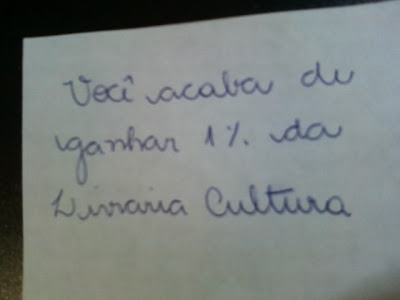 Você acaba de
ganhar 1%. da
Livraria Cultura